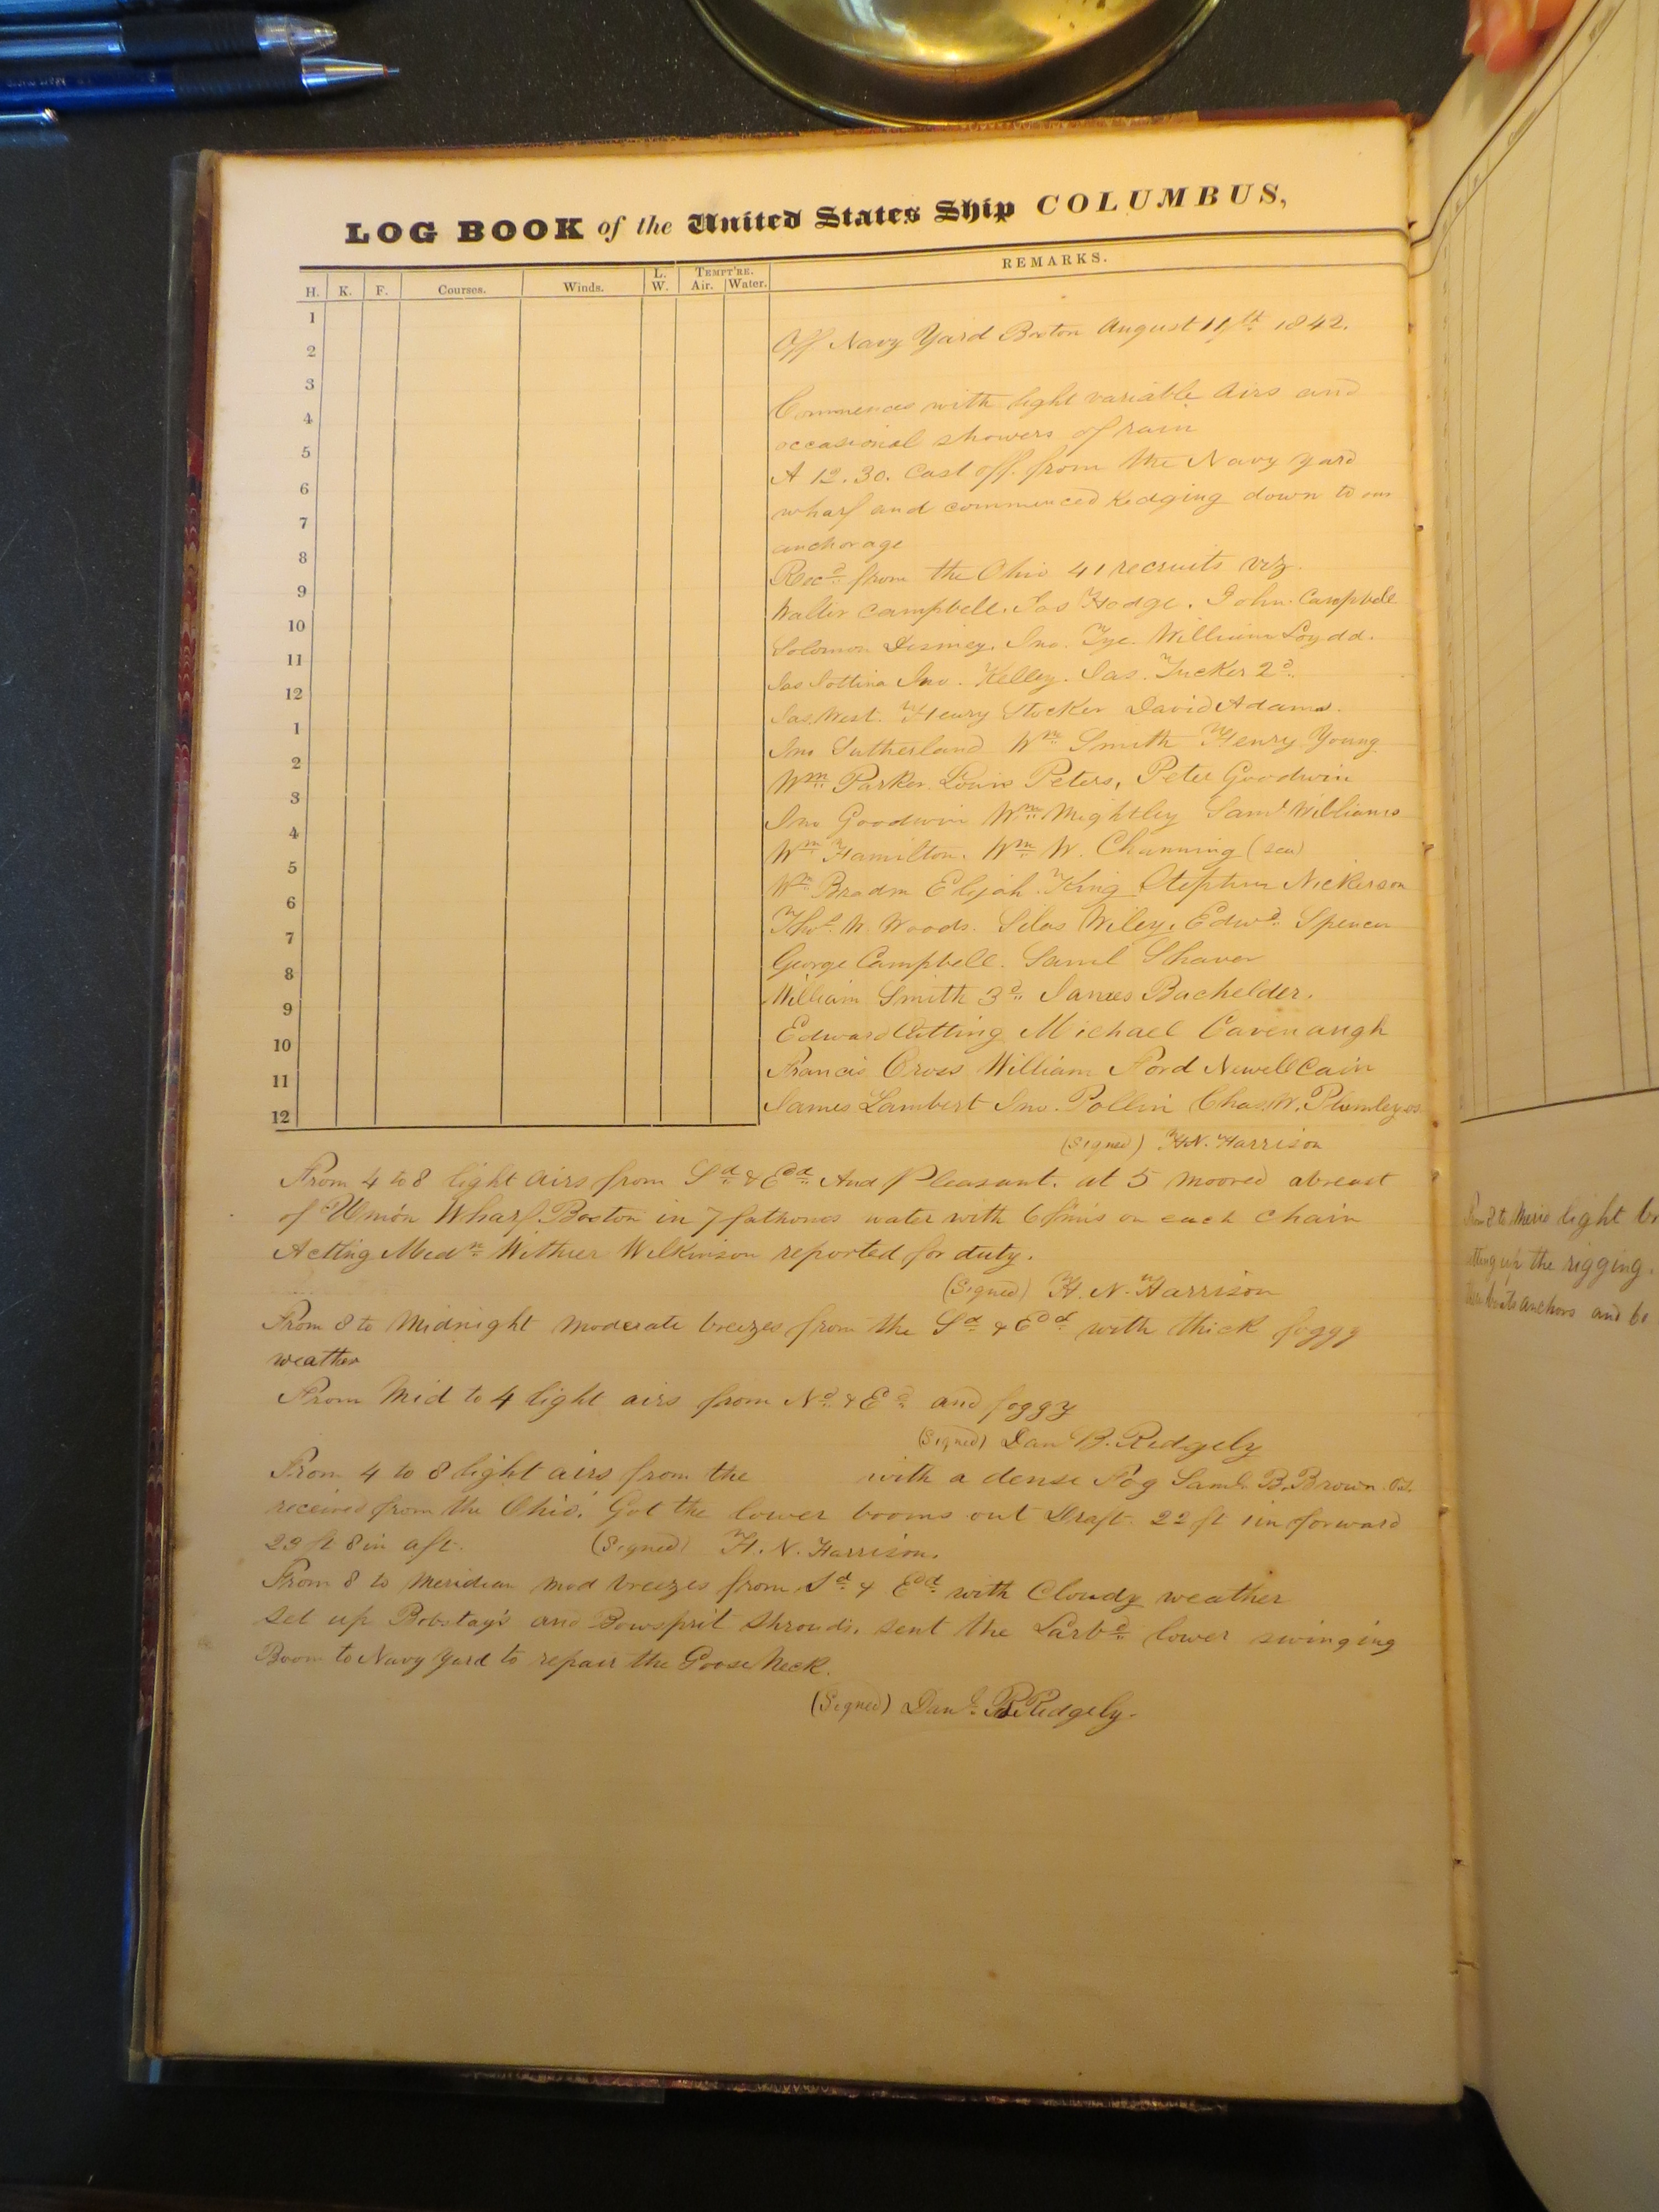 LOG BOOK of the United States Ship COLUMBUS,
H. K. F. Courses. Winds. L. W. TEMPT'RE. Air. Water. REMARKS.
1
2
3
4
5
6
7
8
9
10
11
12
1
2
3
4
5
6
7
8
9
10
11
12
Off Navy Yard Boston August 11th 1842.
Commences with light variable airs and
occasional showers of rain
At 12.30. Cast off from the Navy yard
wharf and commenced Kedging down to our
anchorage
Recd from the Ohio 41 recruits viz.
Walter Campbell. Jas Hodge. John Campbell
Solomon Jno. Tye. William Loydd.
Jas Jno. Kelley. Jas. Tucker 2d.
Jas. West. Henry Stocker David Adams.
Jno Sutherland Wm Smith Henry Young
Wm Parker Louis Peters, Peter Goodwin
Jno Goodwin Wm Mightley Saml Williams
Wm Hamilton. Wm W. Channing (sea)
Wm Elijah King Stephen Nickerson
Thos. W. Woods. Silas Wiley. Edwd. Spencer
George Campbell. Saml Shaver
William Smith 3d. James Bachelder.
Edward Cutting Michael Cavenaugh
Francis Cross William Ford Newell Cain
James Lambert Jno. Pollin Chas. W. Plumley
(Signed) H.N. Harrison
From 4 to 8 light airs from Sd & Edd. And Pleasant. at 5 moored abreast
of Union Wharf Boston in 7 fathoms water with 6 on each chain
Acting Midn Wilkinson reported for duty.
(Signed) H. N. Harrison
From 8 to Midnight moderate breezes from the Sd & Edd with thick foggy
weather
From Mid to 4 light airs from Nd & Ed and foggy
(Signed) Dan B. Ridgely
From 4 to 8 light airs from the with a dense Fog Saml. B. Brown
received from the Ohio. Got the lower booms out Draft. 22 ft 1 in forward
23 ft 8 in aft. (Signed) H. N. Harrison.
From 8 to Meridian mod breezes from Sd & Edd with Cloudy weather
Set up Bobstay's and Bowsprit Shrouds. sent the Larbd. lower swinging
Boom to Navy Yard to repair the Goose Neck.
(Signed) Danl. B. Ridgely.
From 8 to Meria light
up the rigging.
anchors and